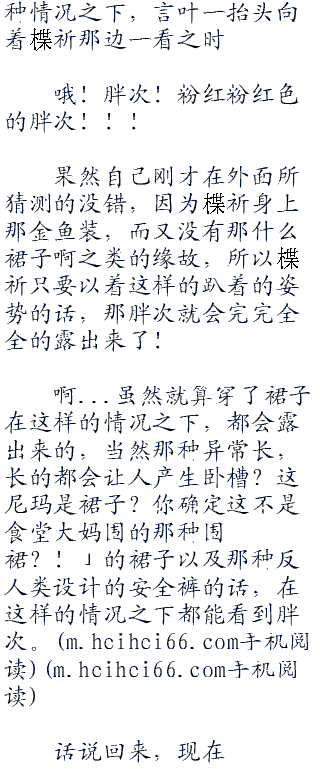 种情况之下，言叶一抬头向
着楪祈那边一看之时
哦！胖次！粉红粉红色
的胖次！！！
果然自己刚才在外面所
猜测的没错，因为楪祈身上
那金鱼装，而又没有那什么
裙子啊之类的缘故，所以楪
祈只要以着这样的趴着的姿
势的话，那胖次就会完完全
全的露出来了！
啊...虽然就算穿了裙子
在这样的情况之下，都会露
出来的，当然那种异常长，
长的都会让人产生卧槽？这
尼玛是裙子？你确定这不是
食堂大妈围的那种围
裙？！」的裙子以及那种反
人类设计的安全裤的话，在
这样的情况之下都能看到胖
次。(m.hcihci66.com手机阅
读)(m.hcihci66.com手机阅
读)
话说回来，现在